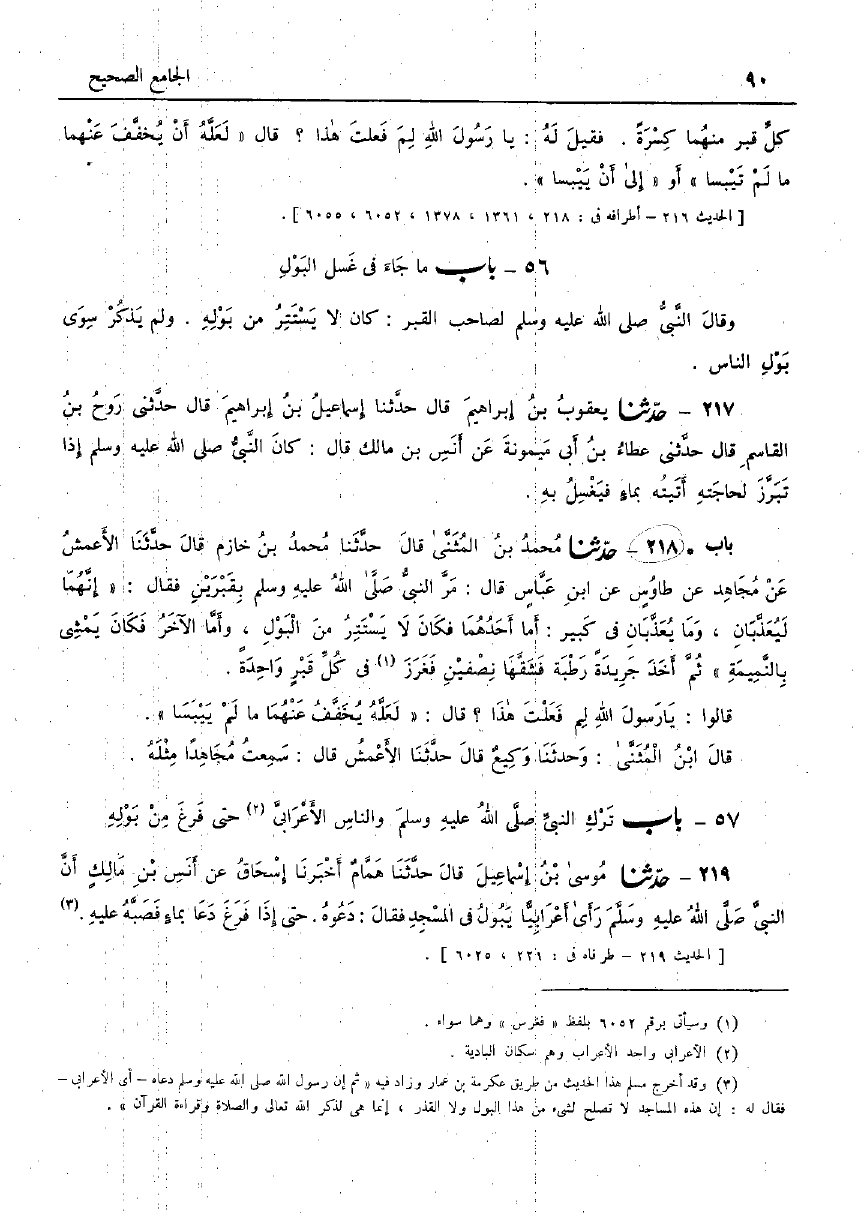 ٩٠ الجامع الصحيح
كلِّ قبر منهُما كِسْرَةً . فقيلَ لَهُ : يا رَسُولَ اللهِ لِمَ فَعلتَ هٰذا ؟ قال « لَعَلَّهُ أَنْ يُخفَّفَ عَنْهما
ما لَمْ تَيْبسا » أَو « إلىٰ أَنْ يَيْبسا » .
[ الحديث ٢١٦ – أطرافه فى : ٢١٨ ، ١٣٦١ ، ١٣٧٨ ، ٦٠٥٢ ، ٦٠٥٥ ] .
٥٦ – باب ما جَاءَ فى غَسل البَوْلِ
وقالَ النَّبىُّ صلى الله عليه وسلم لصاحب القبر : كان لا يَسْتَتِرُ من بَوْلِهِ . ولم يَذكُرْ سِوَى
بَوْلِ الناس .
٢١٧ – حدّثنا يعقوبُ بنُ إبراهيمَ قال حدَّثنا إسماعيلُ بنُ إبراهيمَ قال حدَّثنى رَوحُ بنُ
القاسمِ قال حدَّثنى عطاءُ بنُ أبى مَيمونةَ عَن أَنَسِ بن مالك قال : كانَ النَّبىُّ صلى الله عليه وسلم إذا
تَبَرَّزَ لحاجَتهِ أَتَيتُه بماءٍ فيَغْسِلُ بهِ .
باب • ٢١٨ – حدّثنا مُحمدُ بنُ المُثَنَّىٰ قالَ حدَّثَنا مُحمدُ بنُ خازم قالَ حدَّثَنَا الأَعمشُ
عَنْ مُجَاهِد عن طاوُسٍ عن ابنِ عَبَّاسٍ قال : مَرَّ النبىُّ صَلَّىٰ اللهُ عليهِ وسلم بِقَبْرَيْنِ فقال : « إنَّهُمَا
لَيُعَذَّبَانِ ، وَمَا يُعَذَّبَانِ فى كَبير : أَما أَحَدُهُمَا فكَانَ لَا يَسْتَتِرُ منَ الْبَوْلِ ، وأَمَّا الآخَرُ فَكَانَ يَمْشِى
بِالنَّمِيمَةِ » ثُمَّ أَخَذَ جَرِيدَةً رَطْبَة فَشَقَّهَا نِصْفَيْنِ فَغَرَزَ (١) فى كُلِّ قَبْرٍ وَاحِدَةً .
قالوا : يَارَسولَ اللهِ لِم فَعَلْتَ هٰذَا ؟ قال : « لَعَلَّهُ يُخَفَّفُ عَنْهُمَا ما لَمْ يَيْبَسَا » .
قالَ ابْنُ الْمُثَنَّىٰ : وَحدثَنَا وَكيعٌ قالَ حدَّثَنَا الأَعْمشُ قال : سَمِعتُ مُجَاهِدًا مِثْلَهُ .
٥٧ – باب تَرْكِ النبىِّ صلَّى اللهُ عليهِ وسلمَ والناسِ الأَعْرَابىَّ (٢) حتى فَرغَ مِنْ بَوْلِهِ
٢١٩ – حدّثنا مُوسىٰ بْنُ إسْماعِيلَ قالَ حدَّثَنَا هَمَّامٌ أَخْبَرَنَا إسْحَاقُ عن أَنَسِ بْنِ مَالِكٍ أَنَّ
النبىَّ صَلَّى اللهُ عليهِ وسَلَّمَ رَأَىٰ أَعْرَابِيًّا يَبُولُ فى المسْجِدِ فقالَ : دَعُوهُ . حتى إذَا فَرَغَ دَعَا بماءٍ فَصَبَّهُ عليهِ . (٣)
[ الحديث ٢١٩ – طرفاه فى : ٢٢١ ، ٦٠٢٥ ] .
(١) وسيأتى برقم ٦٠٥٢ بلفظ « فغرس » وهما سواء .
(٢) الأعرابى واحد الأعراب وهم سكان البادية .
(٣) وقد أخرج مسلم هذا الحديث من طريق عكرمة بن عمار وزاد فيه « ثم إن رسول الله صلى الله عليه وسلم دعاه – أى الأعرابى –
فقال له : إن هذه المساجد لا تصلح لشىء من هذا البول ولا القذر ، إنما هى لذكر الله تعالى والصلاة وقراءة القرآن » .